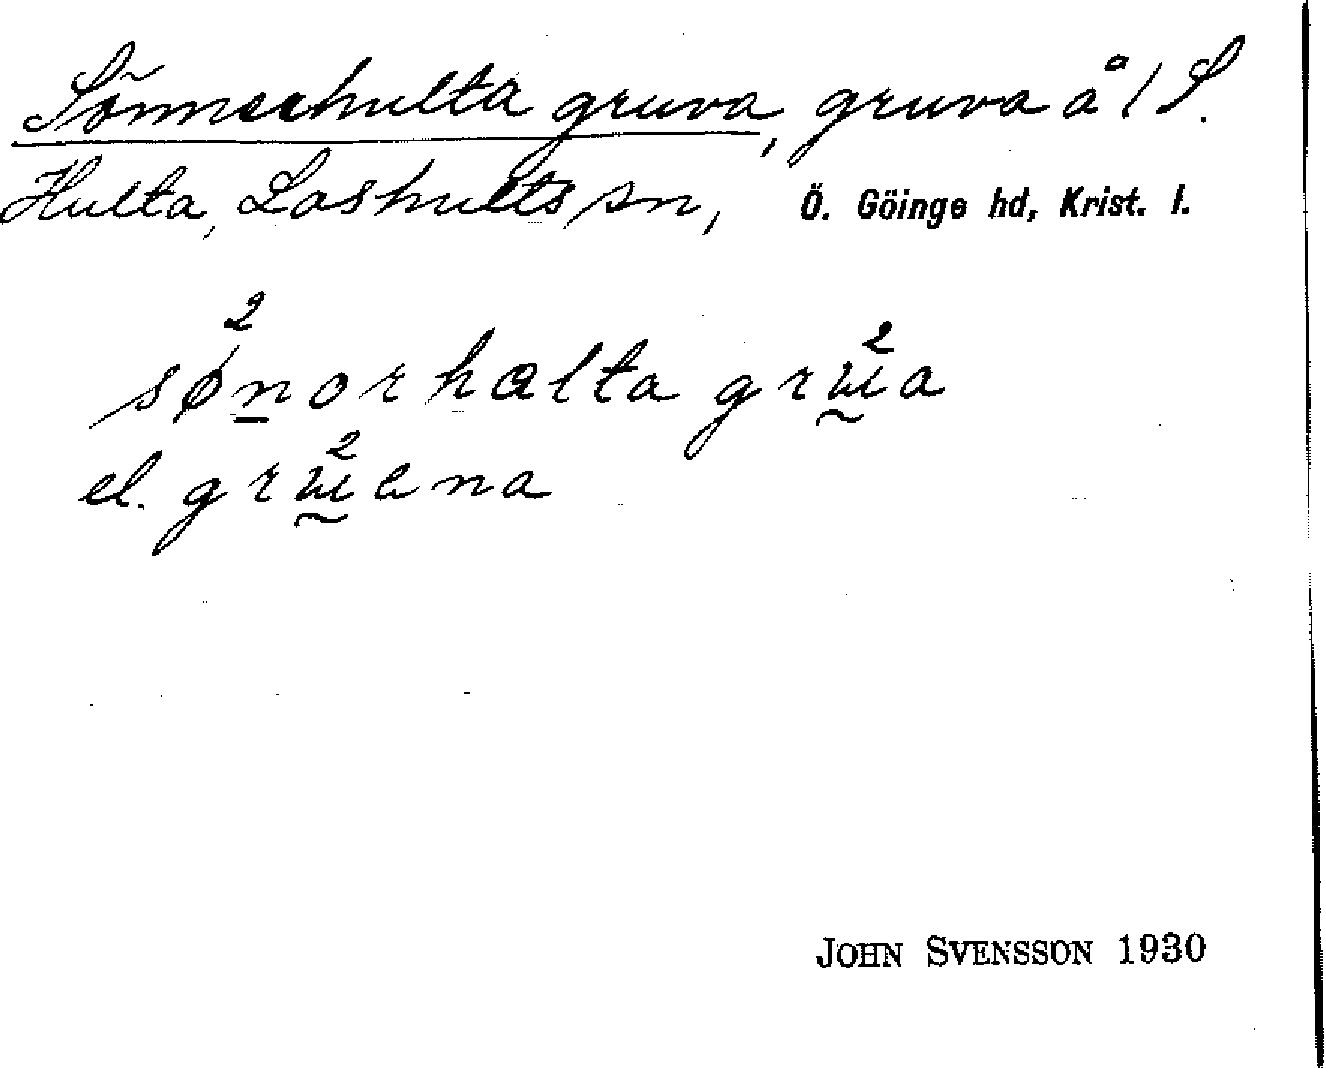 Sönnerhulta gruva, gruva å 1 S.
Hulta, Loshults sn, Ö. Göinge hd, Krist. l.
2
sønorhalta grɯa
2
el. grɯena
2
JOHN SVENSSON 1930